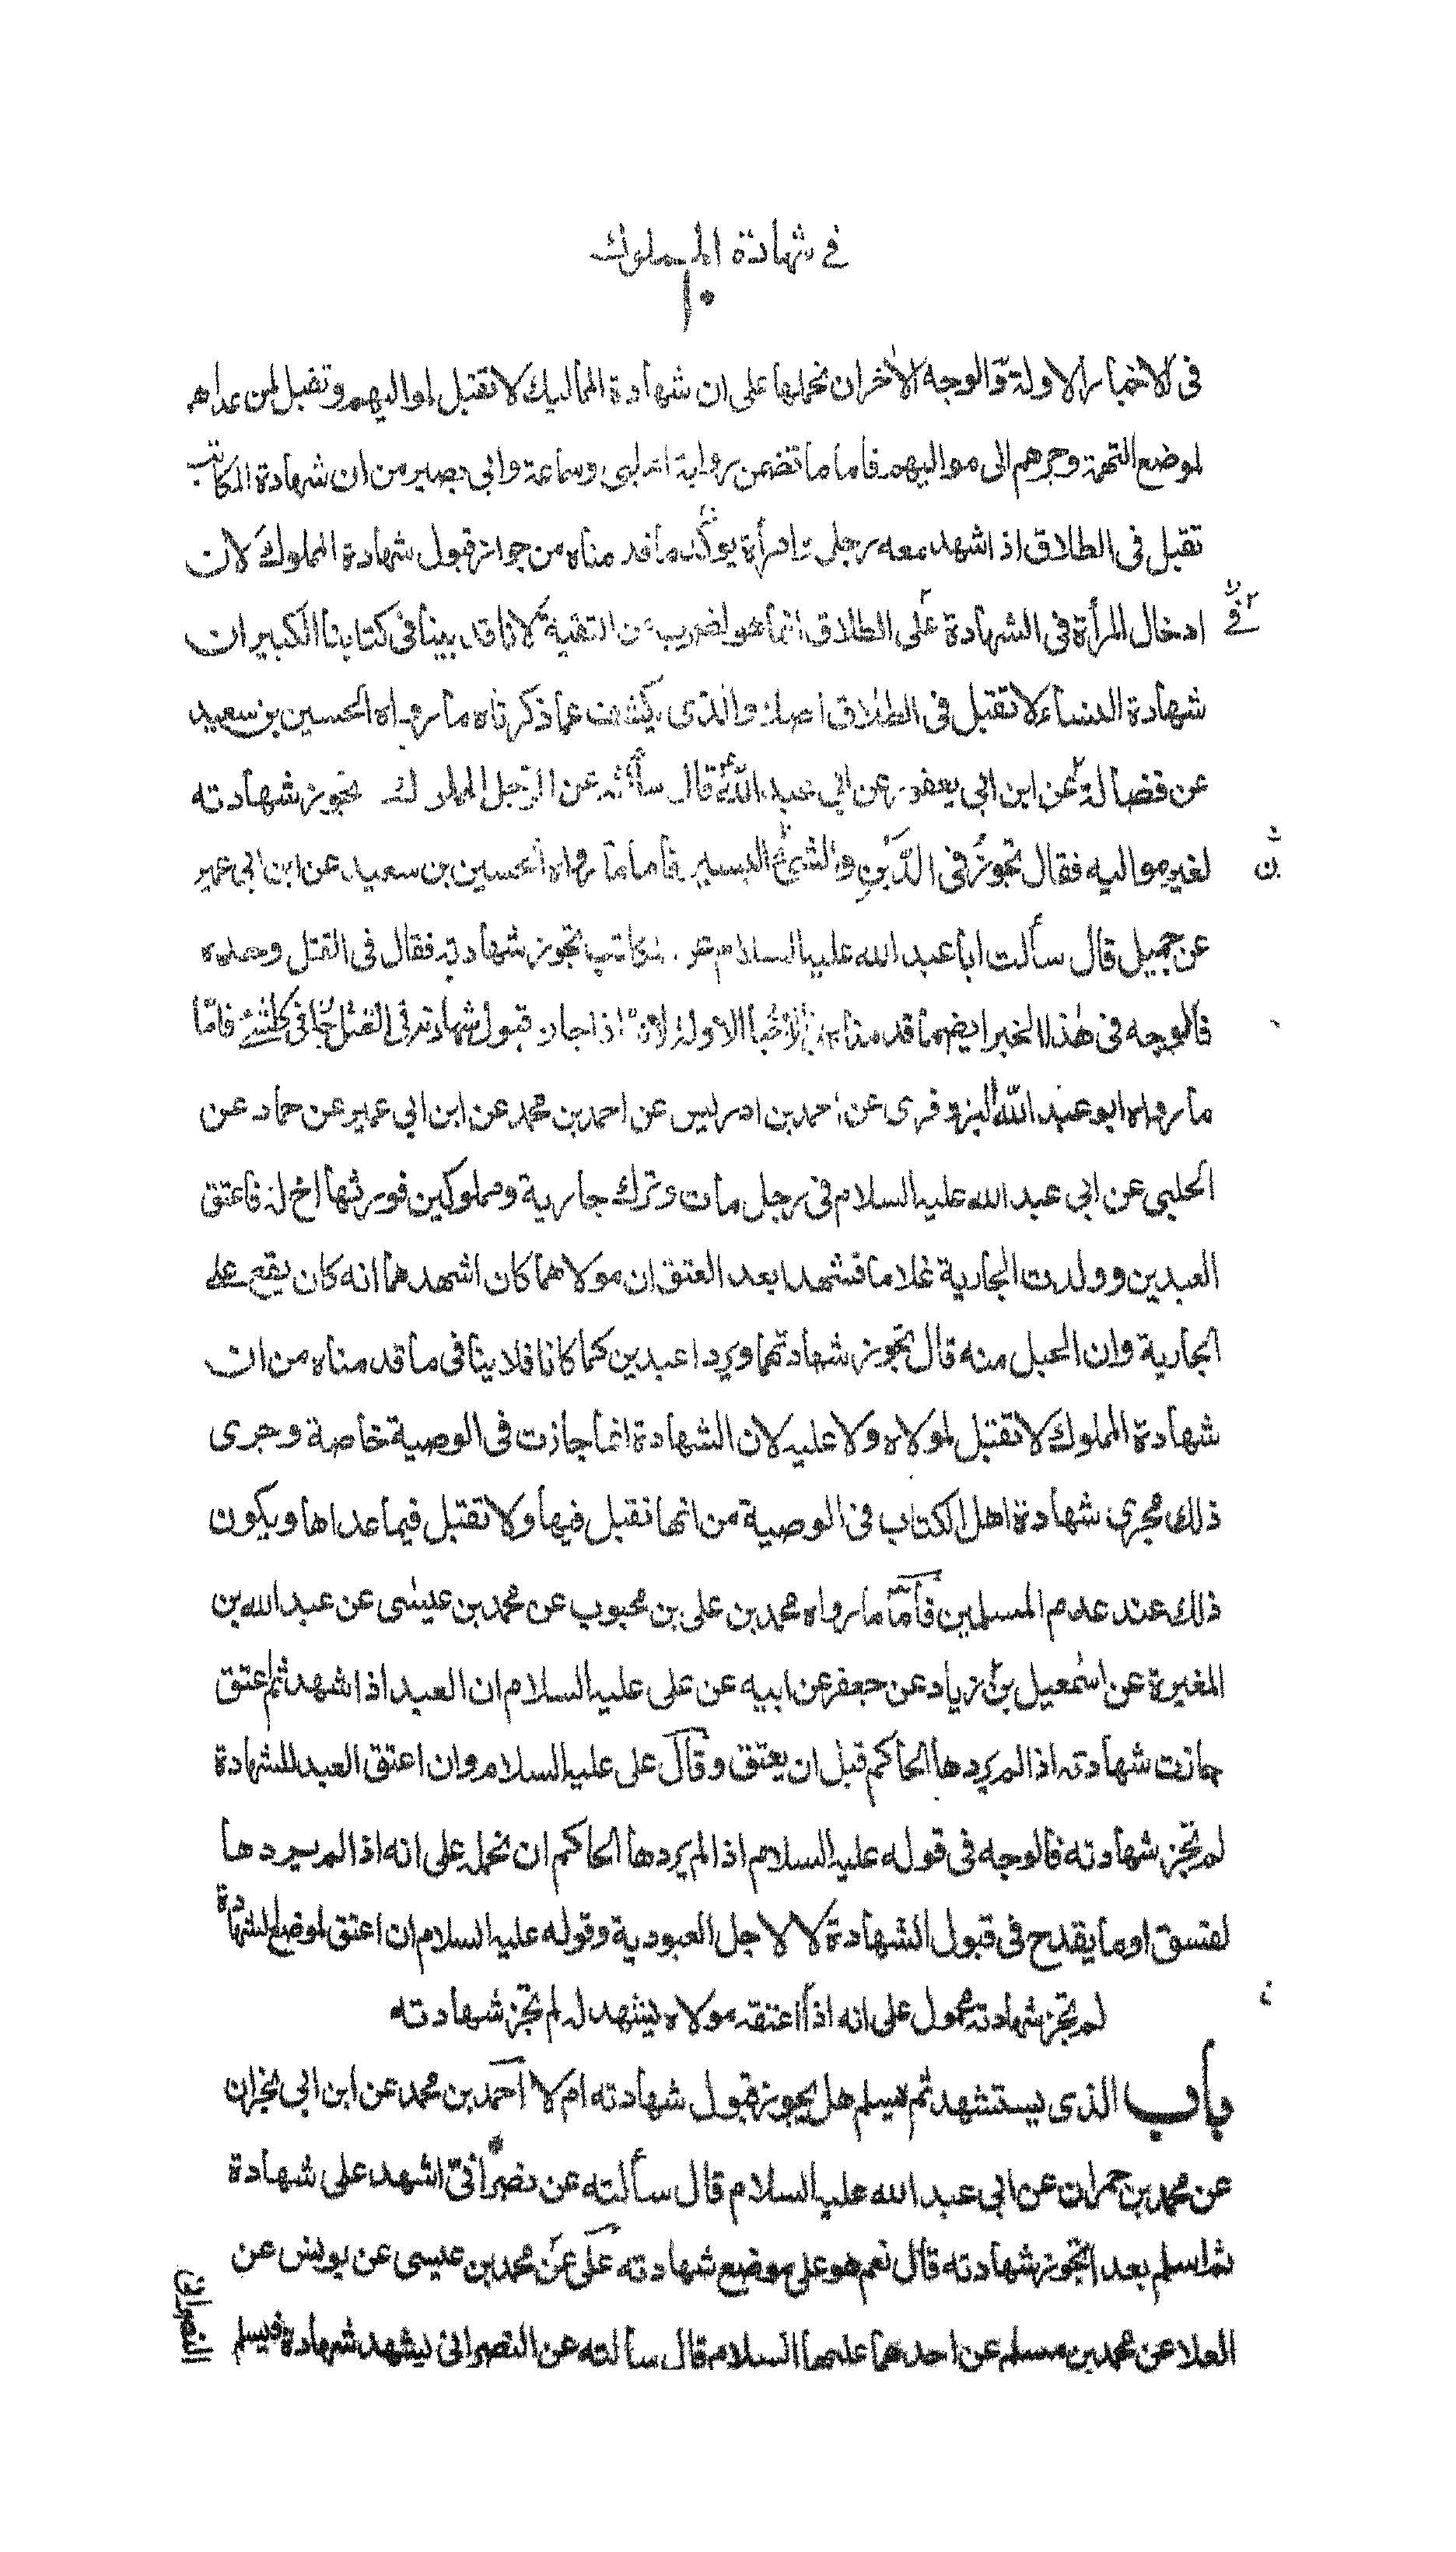 في شهادة المملوك
١٠
فى الاخبار الاولة والوجه الآخر ان نحملها على ان شهادة المماليك لا تقبل لمواليهم وتقبل لمن عداهم
لموضع التهمة وجرهم الى مواليهم فاما ما تضمن رواية الحلبى وسماعة وابي بصير من ان شهادة المكاتب
تقبل فى الطلاق اذا شهد معه رجل وامرأة يؤكد ما قدمناه من جواز قبول شهادة المملوك لان
ادخال المرأة فى الشهادة على الطلاق انما هو لضرب من التقية لانا قد بينا فى كتابنا الكبير ان
شهادة النساء لا تقبل فى الطلاق اصلا والذى يكشف عما ذكرناه ما رواه الحسين بن سعيد
عن فضالة عن ابن ابي يعفور عن ابي عبد الله قال سألته عن الرجل المملوك تجوز شهادته
لغير مواليه فقال تجوز فى الدين والشئ اليسير فأما ما رواه الحسين بن سعيد عن ابن ابى عمير
عن جميل قال سألت ابا عبد الله عليه السلام عن مكاتب تجوز شهادته فقال فى القتل وحده
فالوجه فى هذا الخبر ايضا ما قدمناه الاخبار الاولة لانه اذا جاز قبول شهادته فى القتل جاز فى كلشئ فامّا
ما رواه ابو عبد الله البزوفرى عن احمد بن ادريس عن احمد بن محمد عن ابن ابي عمير عن حماد عن
الحلبي عن ابي عبد الله عليه السلام فى رجل مات وترك جارية ومملوكين فورثها اخ له فاعتق
العبدين وولدت الجارية غلاما فشهدا بعد العتق ان مولاهما كان اشهدهما انه كان يقع على
الجارية وان الحبل منه قال تجوز شهادتهما ويردا عبدين كما كانا فلا ينافى ما قدمناه من ان
شهادة المملوك لا تقبل لمولاه ولا عليه لان الشهادة انما جازت فى الوصية خاصة وجرى
ذلك مجرى شهادة اهل الكتاب فى الوصية من انها تقبل فيها ولا تقبل فيما عداها ويكون
ذلك عند عدم المسلمين فأمّا ما رواه محمد بن على بن محبوب عن محمد بن عيسى عن عبد الله بن
المغيرة عن اسمعيل بن زياد عن جعفر عن ابيه عن على عليه السلام ان العبد اذا شهد ثم اعتق
جازت شهادته اذا لم يردها الحاكم قبل ان يعتق وقال على عليه السلام وان اعتق العبد للشهادة
لم تجز شهادته فالوجه فى قوله عليه السلام اذا لم يردها الحاكم ان نحمله على انه اذا لم يردها
لفسق او ما يقدح فى قبول الشهادة لا لاجل العبودية وقوله عليه السلام ان اعتق لموضع الشهادة
لم تجز شهادته محمول على انه اذا اعتقه مولاه ليشهد له لم تجز شهادته
باب الذى يستشهد ثم يسلم هل يجوز قبول شهادته ام لا احمد بن محمد عن ابن ابى نجران
عن محمد بن حمران عن ابي عبد الله عليه السلام قال سألته عن نصرانىّ اشهد على شهادة
ثم اسلم بعد اتجوز شهادته قال نعم هو على موضع شهادته على عن محمد بن عيسى عن يونس عن
العلا عن محمد بن مسلم عن احدهما عليهما السلام قال سألته عن النصرانى يشهد شهادة فيسلم